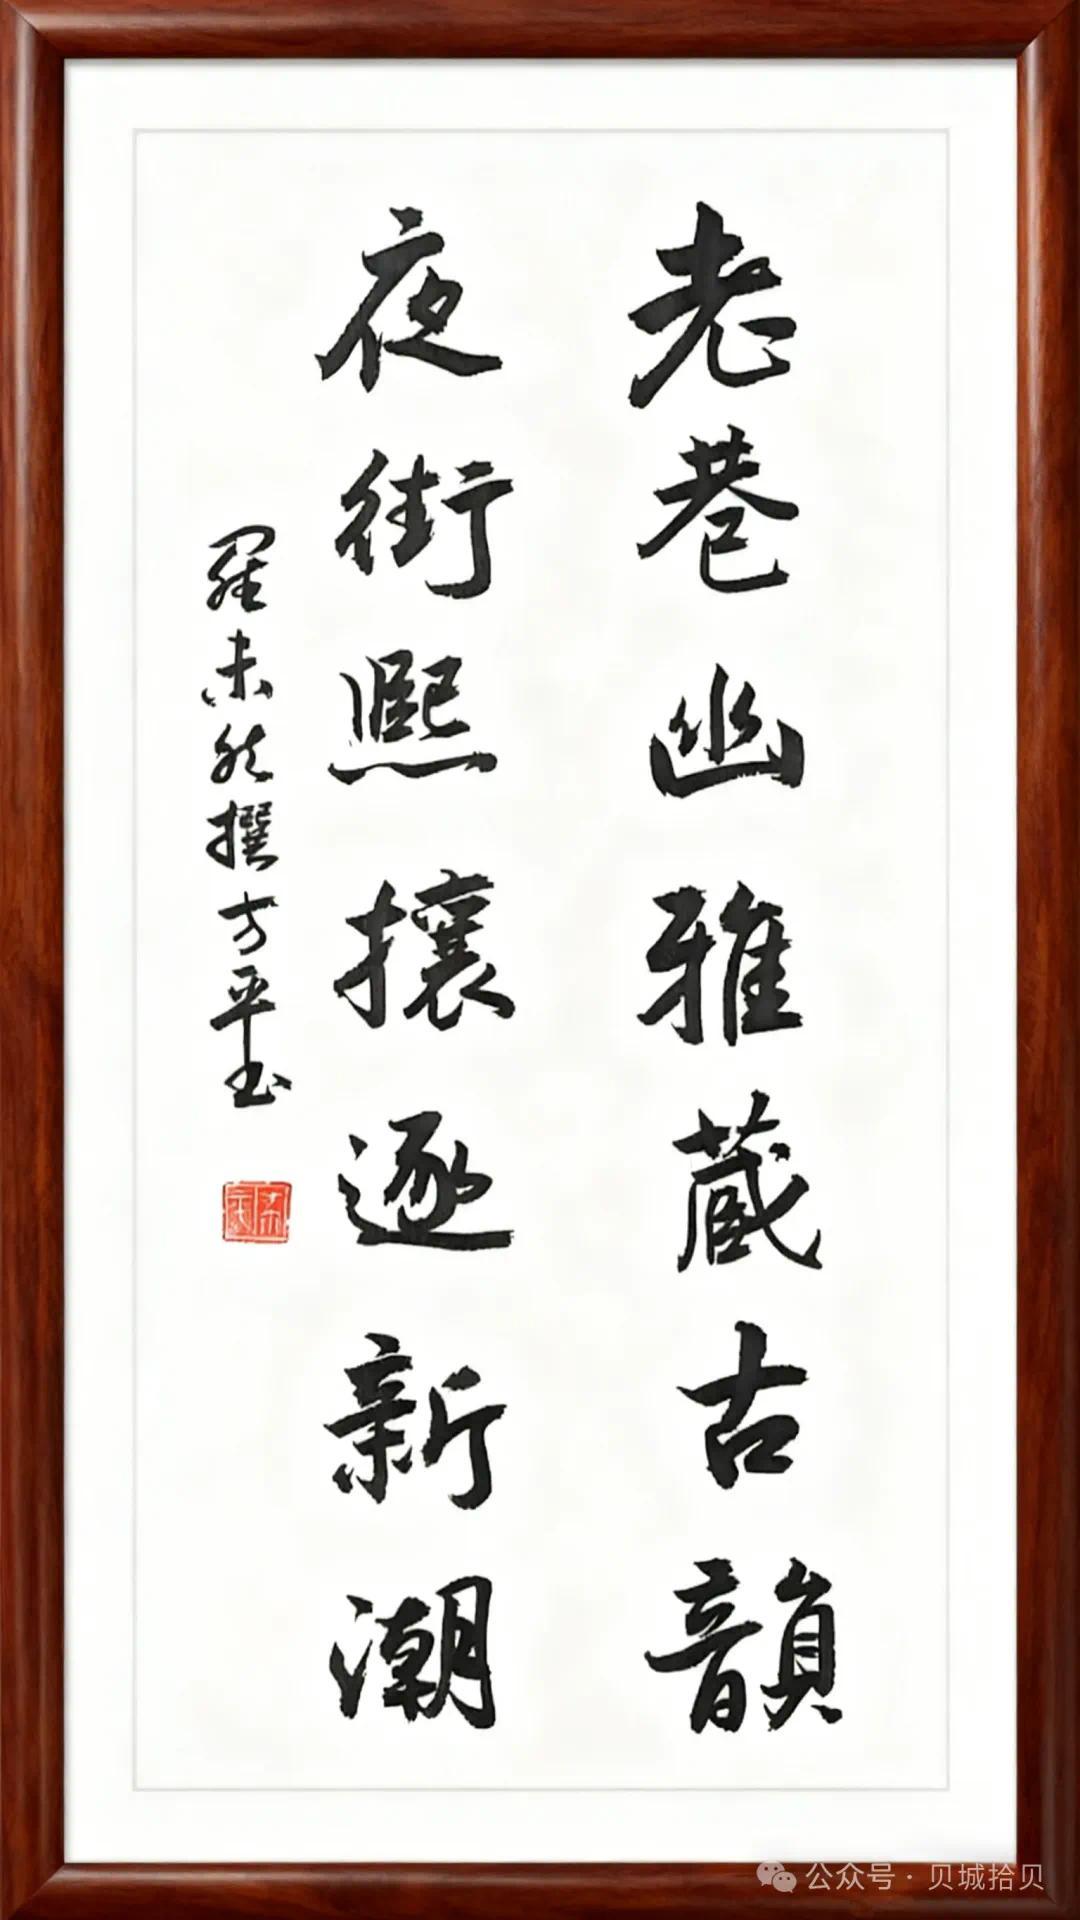 老巷幽雅蔵古韻
夜街熙攘逐新潮
羅未然撰方平书
公众号·贝城拾贝